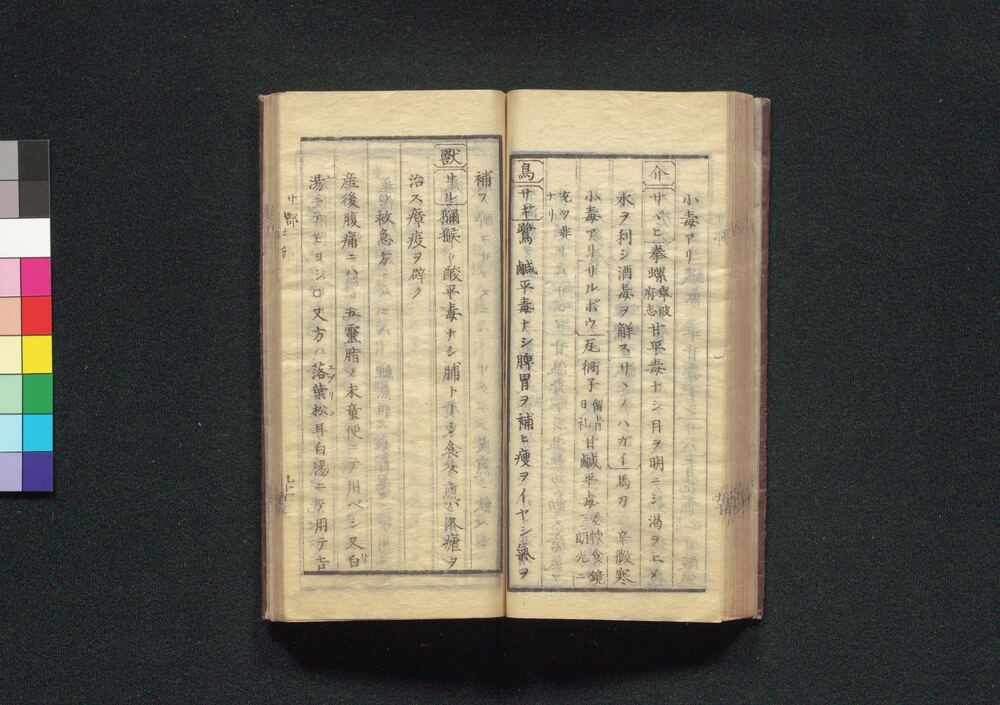 小毒アリ
介 サヾヒ 拳螺 寧波府志 甘平毒ナシ目ヲ明ニシ渇ヲヒメ
水ヲ利シ酒毒ヲ解ス サヽノハガイ 馬刀 辛微寒
小毒アリ サルボウ 瓦衖子 甘鹹平毒
ナリ
鳥 サギ 鷺 鹹平毒ナシ脾胃ヲ補ヒ瘦ヲイヤシ氣ヲ
補ス
獸 サル 獼猴 酸平毒ナシ脯トナシ食
治ス瘴疫ヲ辟ク
救急方
産後腹痛ニハ 五靈脂ノ末童便ニテ用ベシ又白
湯ニテモヨシ○又方ハ落葉松耳白湯ニ 用テ吉
サ部